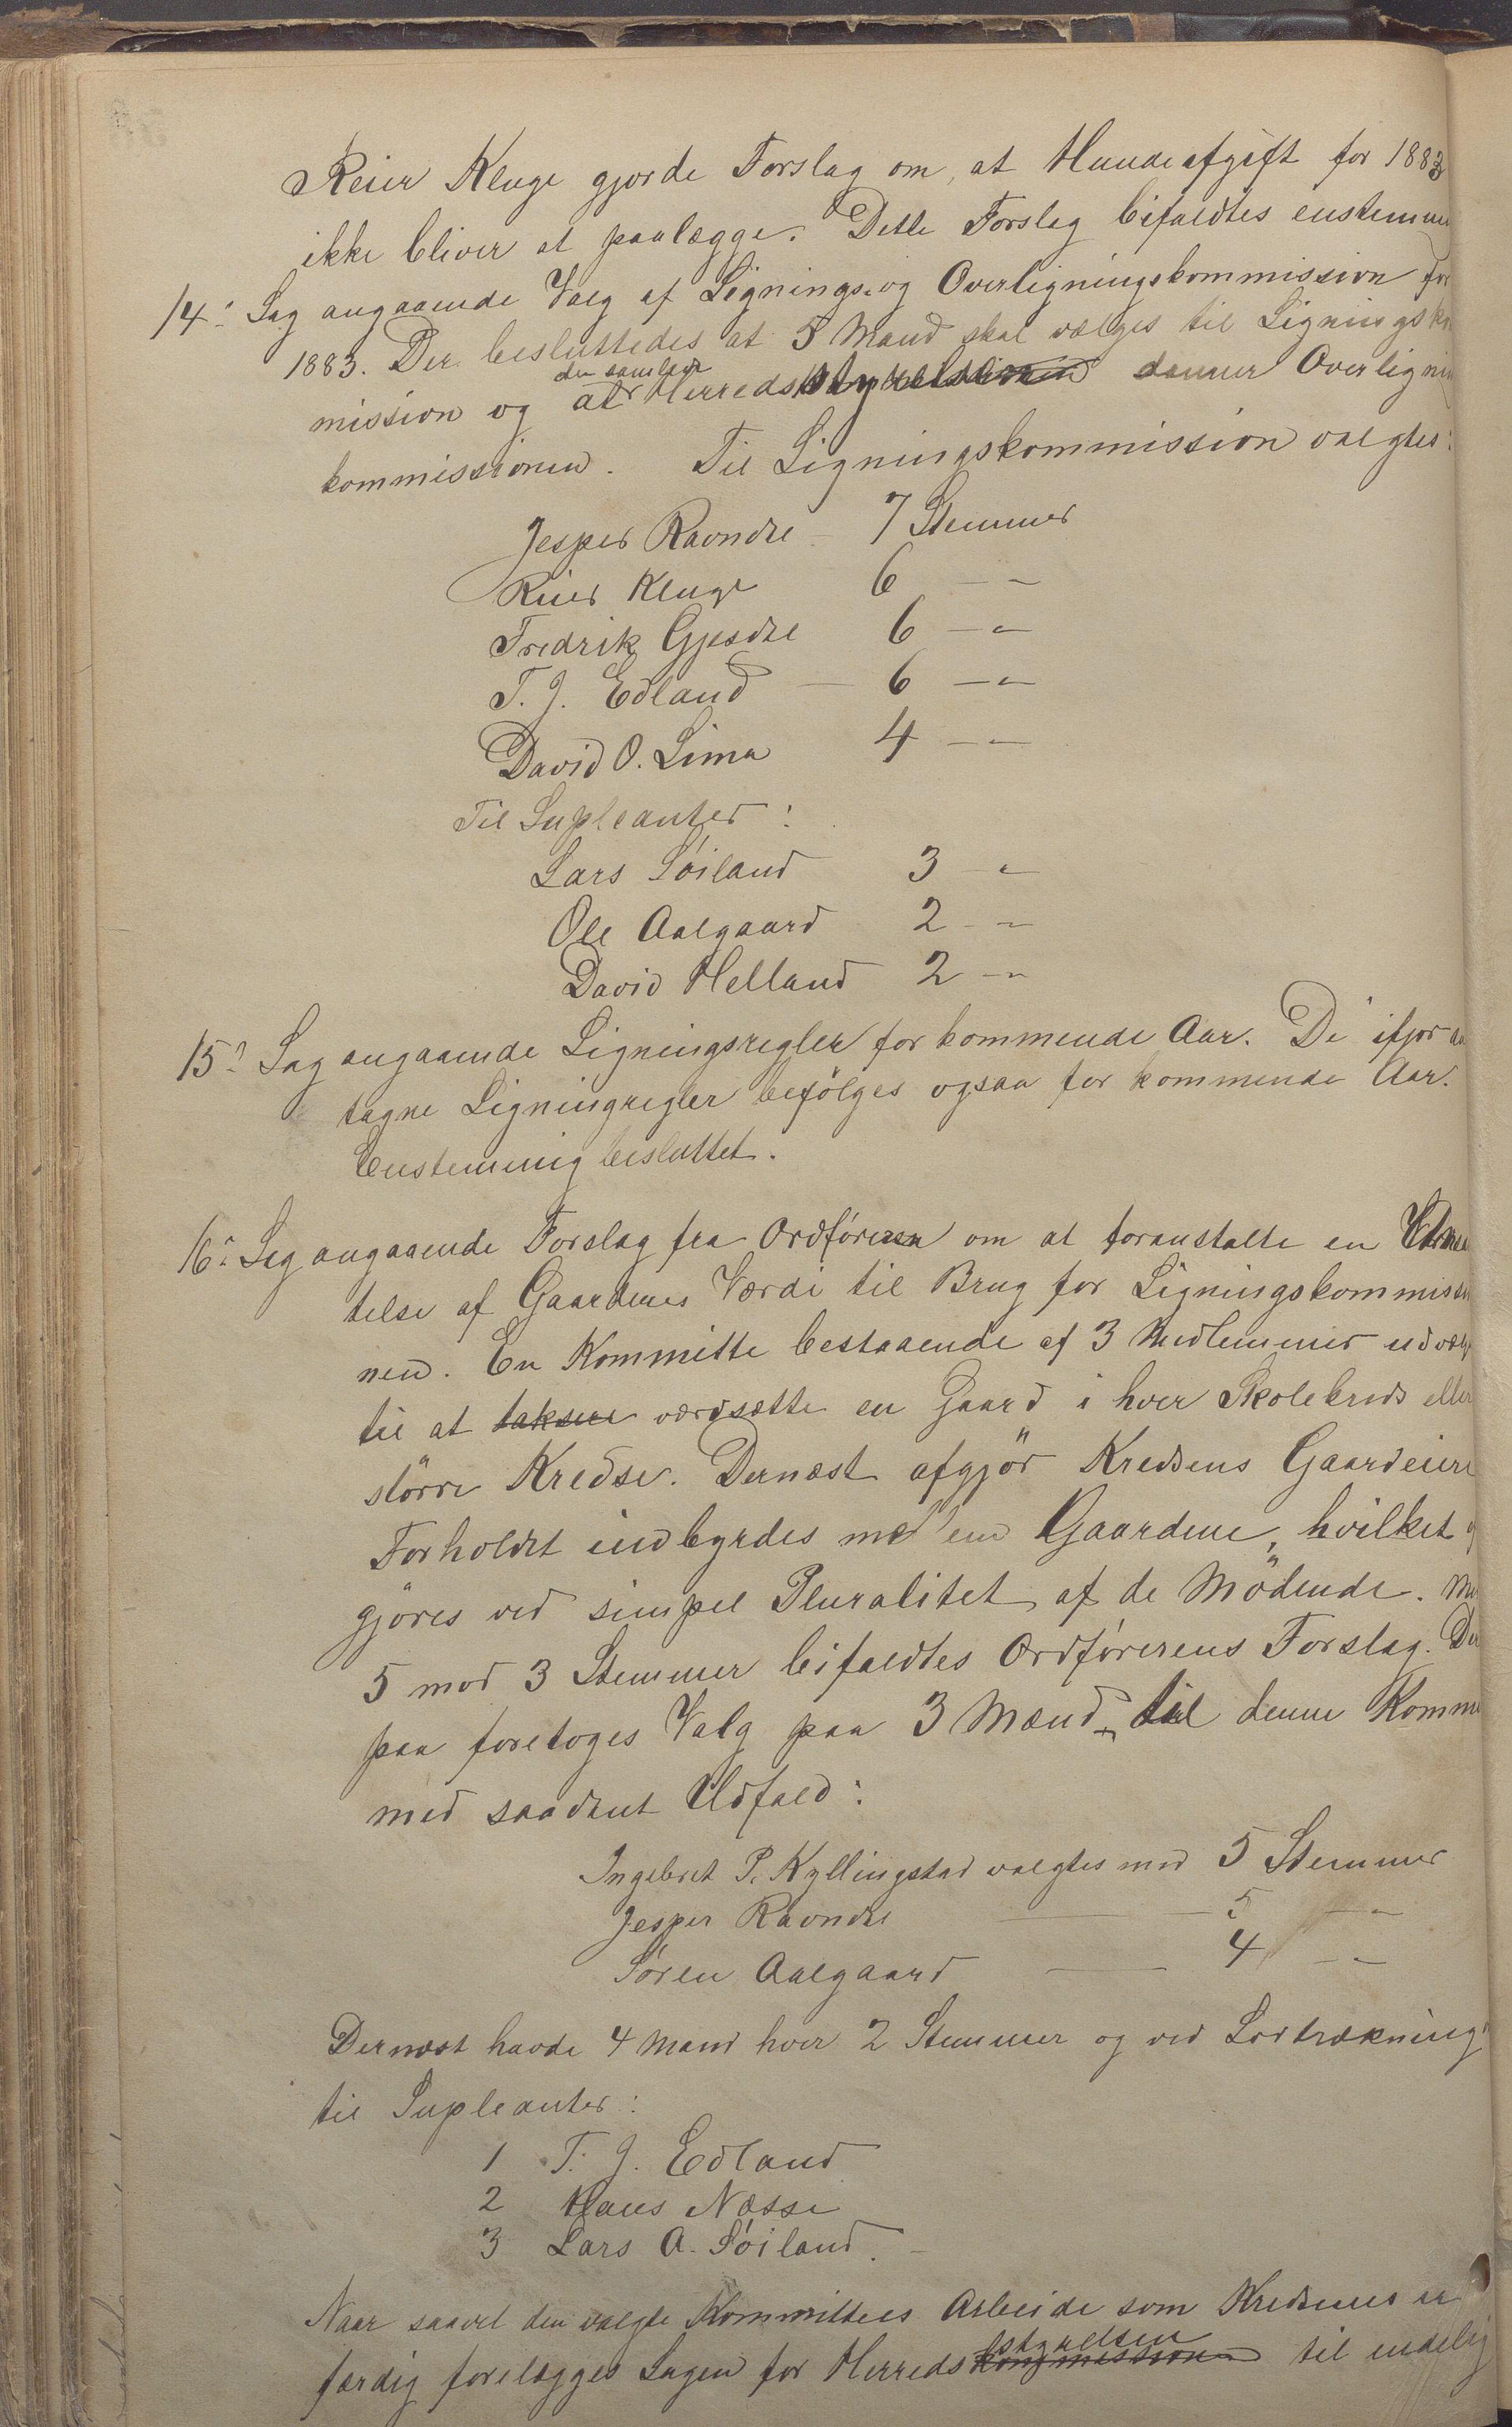 Reier Kluge gjorde Forslag om, at Hundeafgift for 1883
ikke bliver at paalægge. Dette Forslag bifaldtes enstemm
14. Sag angaaende Valg af Lignings- og Overligningskommission for
1883. Der besluttedes at 5 Mand skal vælges til Ligningskom
den samlede
mission og at Herreds danner Overlignin
kommissionen. Til Ligningskommission valgtes:
Jesper Ravndal - 7 Stemmer
Reier Kluge 6 — "
Fredrik Gjesdal 6 — "
T. J. Edland — 6 — "
David O. Lima 4 — "
Til Supleanter:
Lars Söiland 3 — "
Ole Aalgaard 2 — "
David Helland 2 — "
15. Sag angaaende Ligningsregler for kommende Aar. De ifjor an
tagne Ligningregler befölges ogsaa for kommende Aar.
Eenstemmig besluttet.
16. Sag angaaende Forslag fra Ordföreren om at foranstalte en
telse af Gaardenes Værdi til Brug for Ligningskommissio
nen. En Kommitte bestaaende af 3 Medlemmer udvælg
til at taksere værdsætte en Gaard i hver Skolekreds eller
större Kredse. Dernæst afgjör Kredsens Gaardeiere
Forholdet indbyrdes mellem Gaardene, hvilket
gjöres ved simpel Pluralitet af de Mödende. Me
5 mod 3 Stemmer bifaldtes Ordförerens Forslag. Der
paa foretoges Valg paa 3 Mænd til denne Komm
med saadant Udfald:
Ingebret P. Kyllingstad valgtes med 5 Stemmer
Jesper Ravndal — — 5 — "
Sören Aalgaard — 4 — "
Dernæst havde 4 Mand hver 2 Stemmer og ved Lodtrækning
til Supleanter:
1 T. J. Edland
2 Klaus Næsse
3 Lars A. Söiland. —
Naar saavel den valgte Kommittees Arbeide som Kredsenes er
styrelsen
færdig forelægges Sagen for Herredskommissionen til endelig